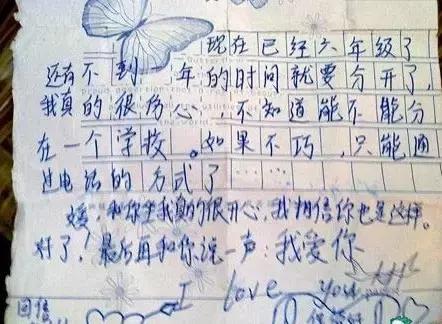 现在已经六年级了
还有不到一年的时间就要分开了,
我真的很伤心,不知道能不能分
在一个学校。如果不巧,只能通
过电话的方式了……
嫒,和你坐我真的很开心,我相信你也是这样。
好了!最后再和你说一声:我爱你
I love you
回信